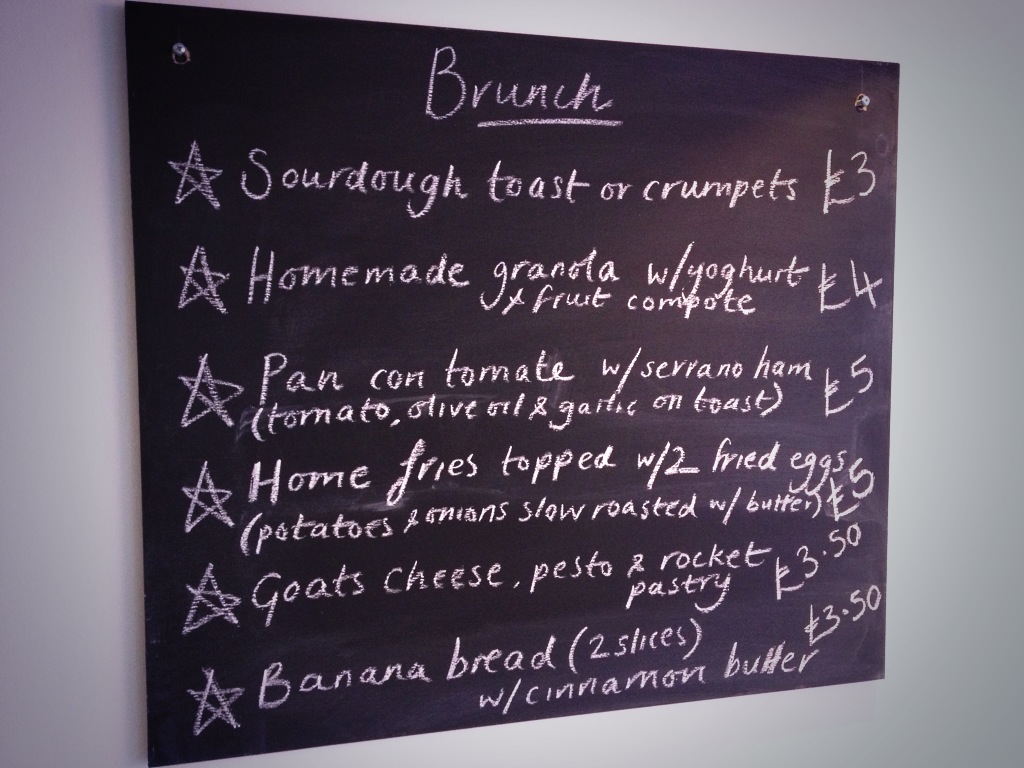 Brunch
Sourdough toast or crumpets £3
Homemade granola w/yoghurt £4
& fruit compote
Pan con tomate w/serrano ham £5
(tomato, olive oil & garlic on toast)
Home fries topped w/2 fried eggs £5
(potatoes & onions slow roasted w/ butter)
Goats cheese, pesto & rocket £3.50
pastry
Banana bread (2 slices) £3.50
w/cinnamon butter